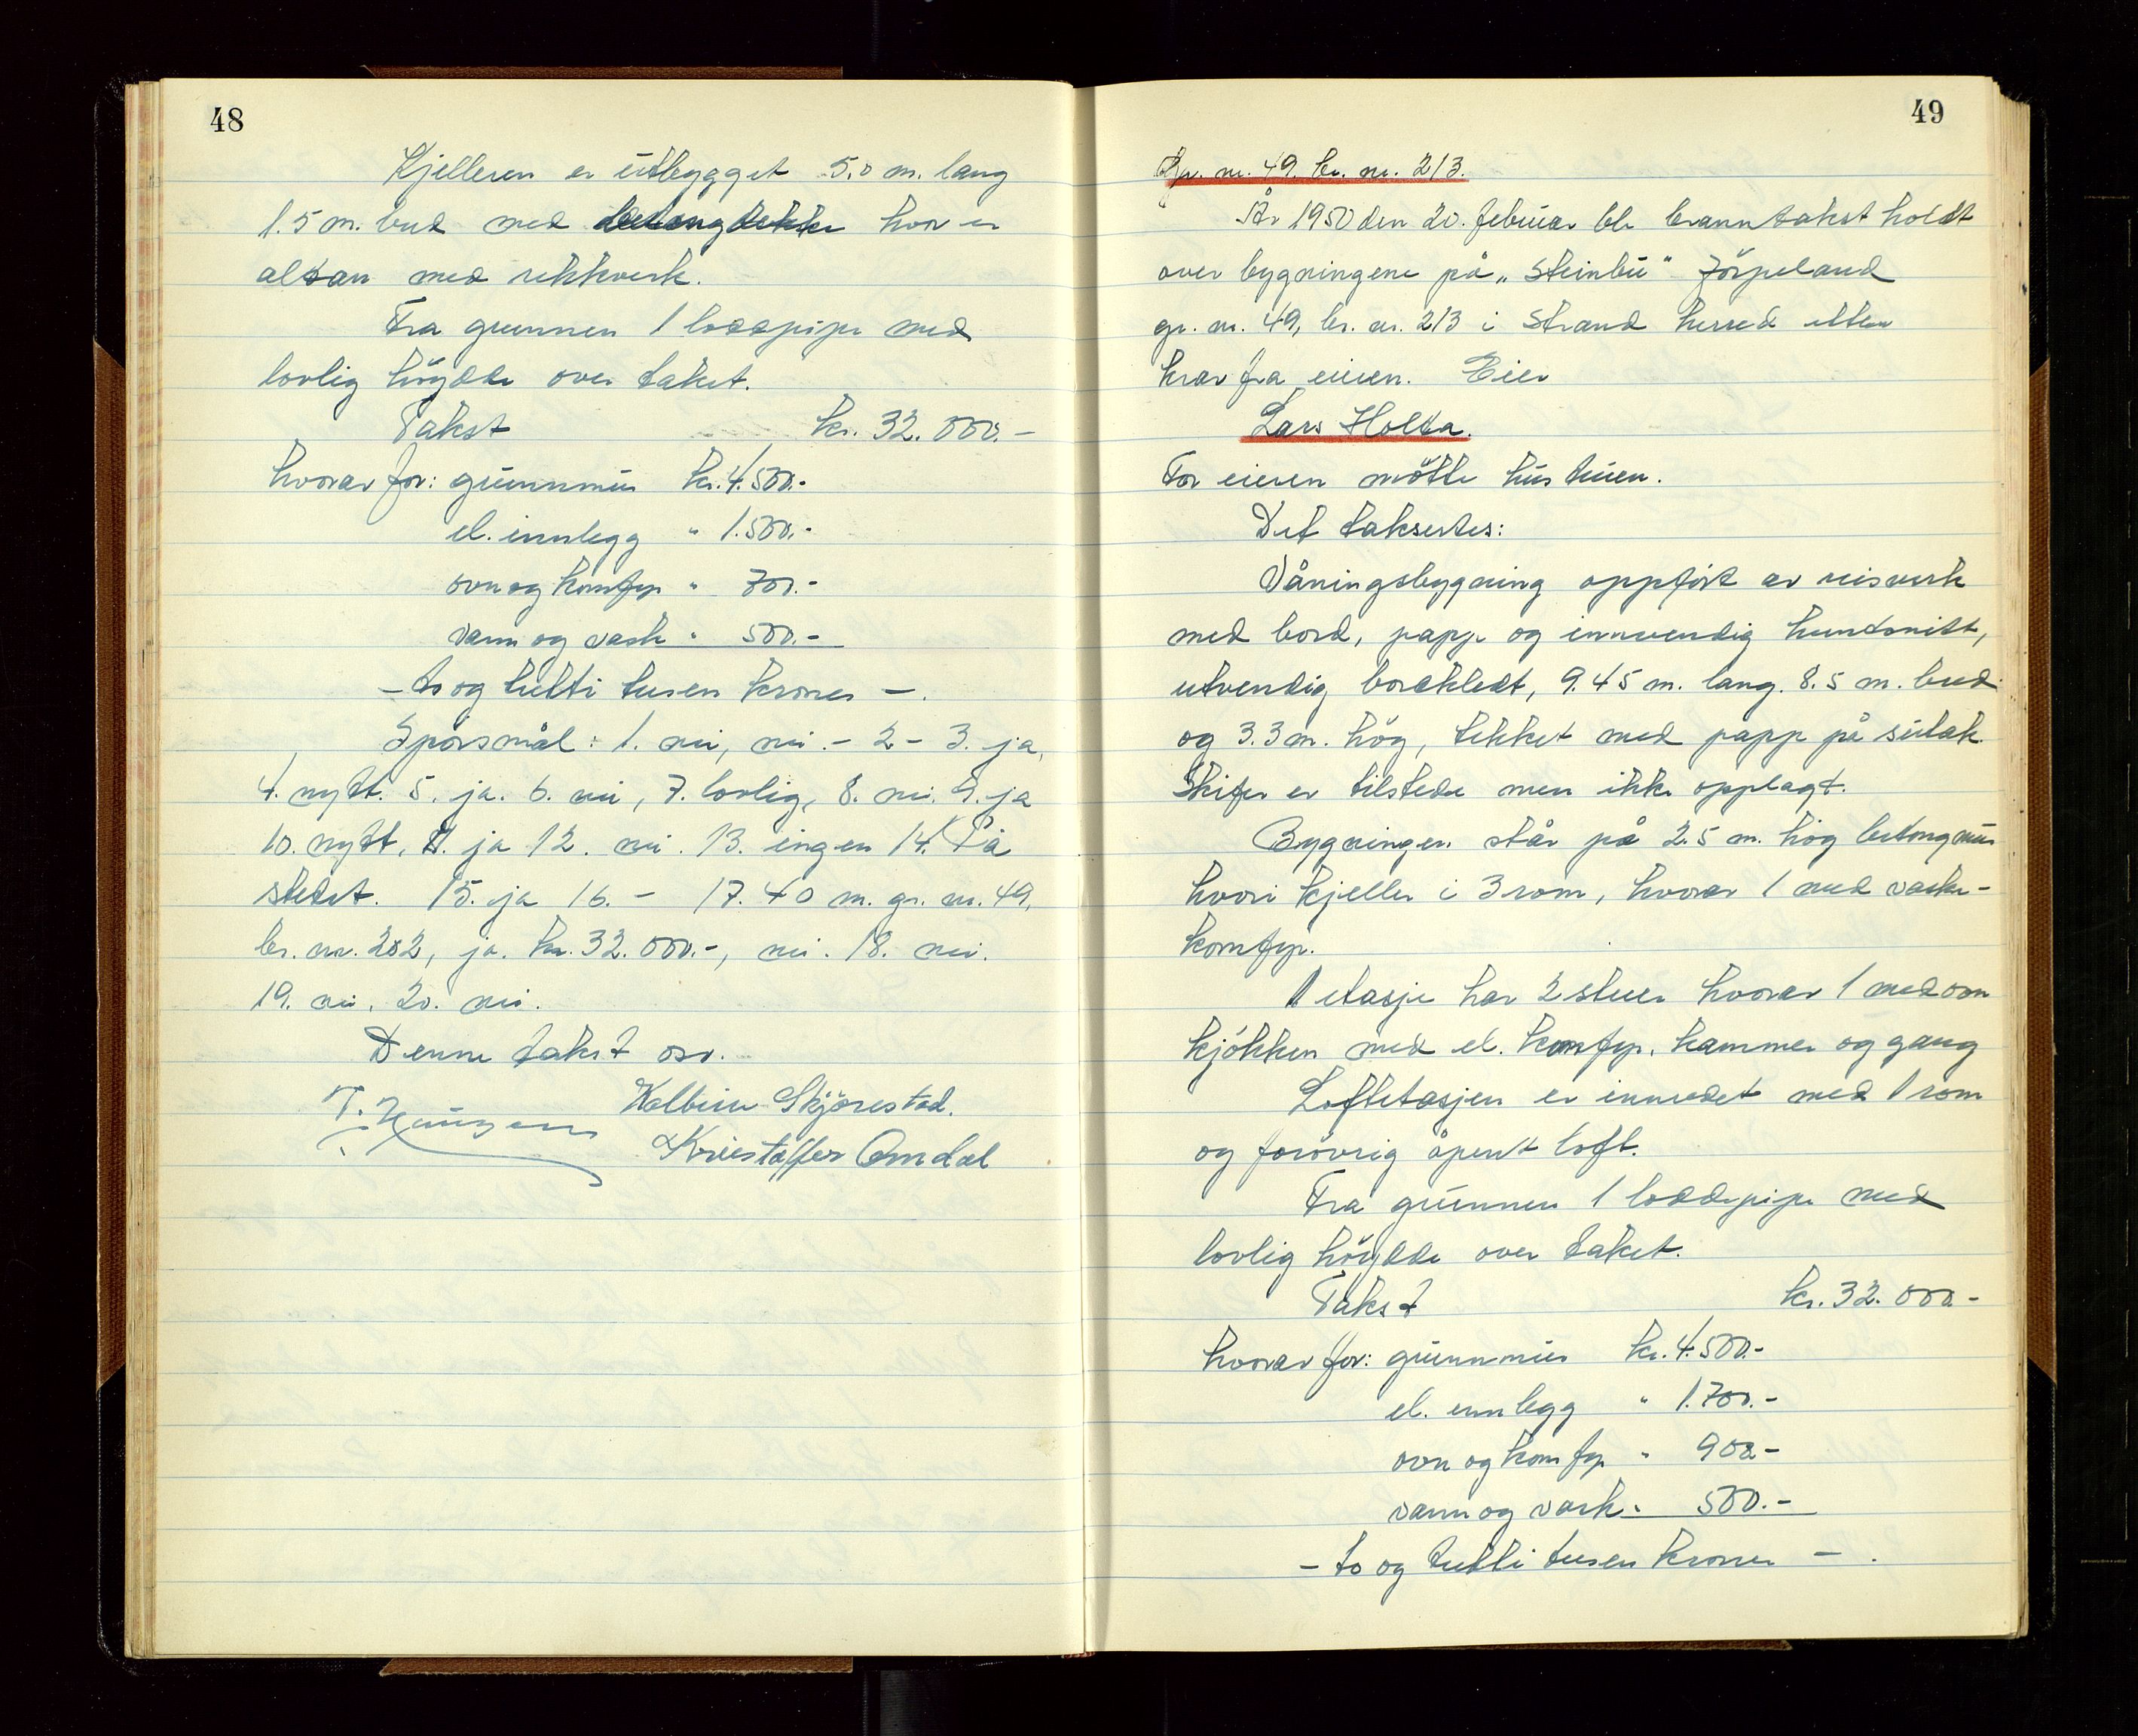 48
Kjelleren er utbygget 5.0 m. lang
1.5 m. bred med betongdekke hvor er
altan med rekkverk.
Fra grunnen 1 loddpipe med
lovlig høydde over taket.
Takst kr. 32.000.-
hvorav for: grunnmur kr. 4.500.-
el. innlegg " 1.500.-
ovn og komfyr " 700.-
vann og vask " 500.-
- to og tretti tusen kroner -.
Spørsmål: 1. nei, nei. - 2 - 3. ja,
4. nytt. 5. ja. 6. nei, 7. lovlig, 8. nei. 9. ja
10. nytt, 11. ja 12. nei. 13. ingen 14. På
stedet. 15. ja 16. - 17. 40 m. gr. nr. 49,
br. nr. 202, ja. kr. 32.000.-, nei. 18. nei.
19. nei. 20. nei.
Denne takst osv.
T. Haugen Kolbein Skjørestad.
Kristoffer Omdal
49
Gr. nr. 49. br. nr. 213.
År 1950 den 20. februar ble branntakst holdt
over bygningene på „Steinbu" Jørpeland
gr. nr. 49, br. nr. 213 i Strand herred etter
krav fra eieren. Eier
Lars Holta.
For eieren møtte hustruen.
Det taksertes:
Våningsbygning oppført av reisverk
med bord, papp og innvendig hundsnitt,
utvendig bordkledt, 9.45 m. lang. 8.5 m. bred
og 3.3 m. høg, tekket med papp på sutak.
Skifer er tilstede men ikke opplagt.
Bygningen står på 2.5 m. høg betongmur
hvori kjeller i 3 rom, hvorav 1 med vaske-
komfyr.
1 etasje har 2 stuer hvorav 1 med ovn
kjøkken med el. komfyr, kammer og gang
Loftetasjen er innredet med 1 rom
og forøvrig åpent loft.
Fra grunnen 1 loddpipe med
lovlig høydde over taket.
Takst kr. 32.000.-
hvorav for: grunnmur kr. 4.500.-
el. innlegg " 1.700.-
ovn og komfyr " 900.-
vann og vask " 500.-
- to og tretti tusen kroner -.